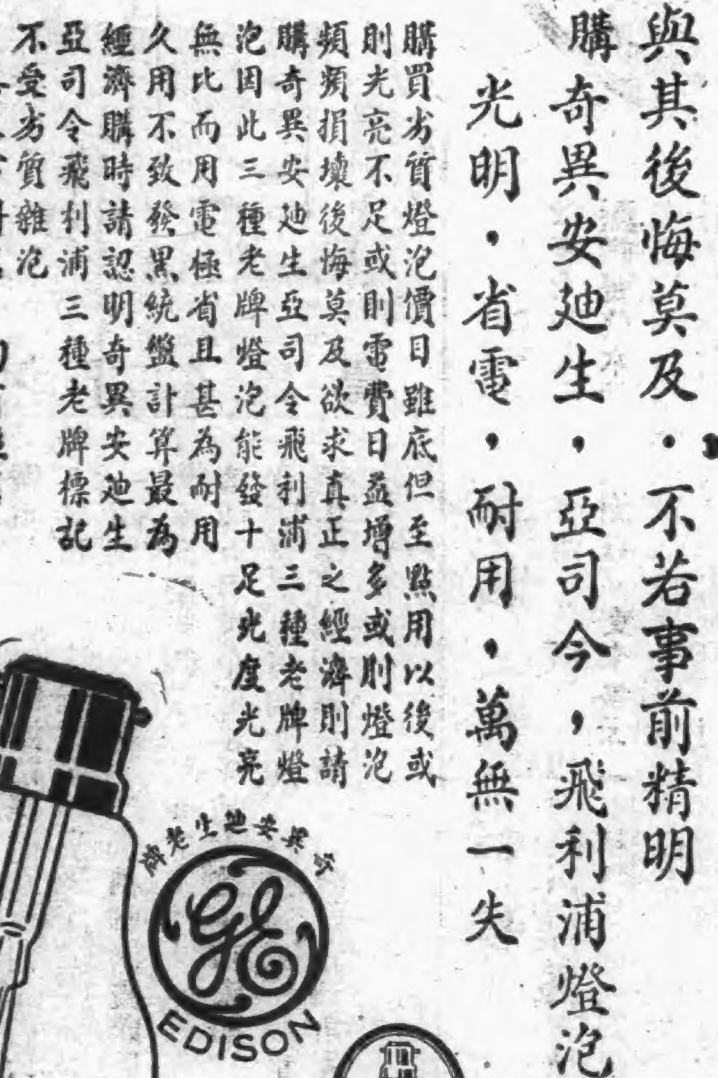 與其後悔莫及．不若事前精明
購奇異安廸生，亞司令，飛利浦燈泡
光明．省電，耐用．萬無一失
購買劣質燈泡價目雖底但至點用以後或
則光亮不足或則電費日益增多或則燈泡
頻頻損壞後悔莫及欲求真正之經濟則請
購奇異安廸生亞司令飛利浦三種老牌燈
泡因此三種老牌燈泡能發十足光度光亮
無比而用電極省且甚為耐用
久用不致發黑統盤計算最為
經濟購時請認明奇異安廸生
亞司令飛利浦三種老牌標記
不受劣質雜泡
奇異安廸生老牌
GE
EDISON